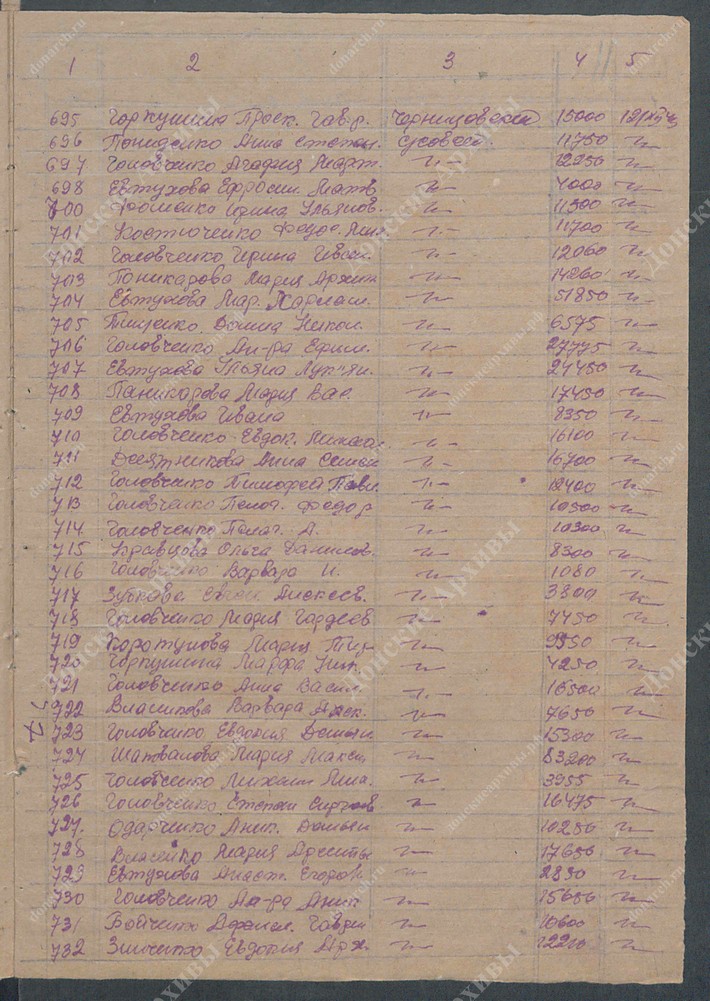 1 2 3 4 5
695 Горкушина Праск. Гавр. Черницовский 15000
696 Анна Степан. с/совет 11750 "
697 Головченко Агафия Март. " 12250 "
698 Евтухова Ефросин. Матв. " 4000 "
700 Фоменко Ирина Ульянов. " 11500 "
701 Костюченко Федос. " 11700 "
702 Головченко Ирина Иван. " 12060 "
703 Поникарова Мария " 14260 "
704 Евтухова Мар. Харлам. " 51850 "
705 Тищенко Домна Никон. " 6575 "
706 Головченко Ал-ра Ефим. " 27775 "
707 Евтухова Ульяна Лукьян. " 24450 "
708 Паникарова Мария Вас. " 17450 "
709 Евтухова Ивана " 8350 "
710 Головченко Евдок. " 16100 "
711 Десятникова Анна Семен. " 16700 "
712 Головченко Тимофей Павл. " 12400 "
713 Головченко Пелаг. Федор. " 10500 "
714 Головченко Пелаг. А. " 10300 "
715 Кравцова Ольга Данилов. " 8300 "
716 Головченко Варвара И. " 1080 "
717 Зубкова Алексеев. " 3800 "
718 Головченко Мария Гордеев. " 7450 "
719 Коротунова Мария " 9550 "
720 Горкушина Марфа " 4250 "
721 Головченко Анна Васил. " 16500 "
722 Варвара " 7650 "
723 Головченко Евдокия Демьян. " 15300 "
724 Шатвалова Мария Макси. " 83200 "
725 Головченко Михаил " 3955 "
726 Головченко Степан " 16475 "
727. Одарченко Анип. Демьян. " 10250 "
728 Власенко Мария " 17650 "
729 Евтухова Анаст. Егоров. " 2830 "
730 Головченко Ал-ра Анип. " "
731 Бойченко Гаврил. " 10600 "
732 Зинченко Евдокия " "